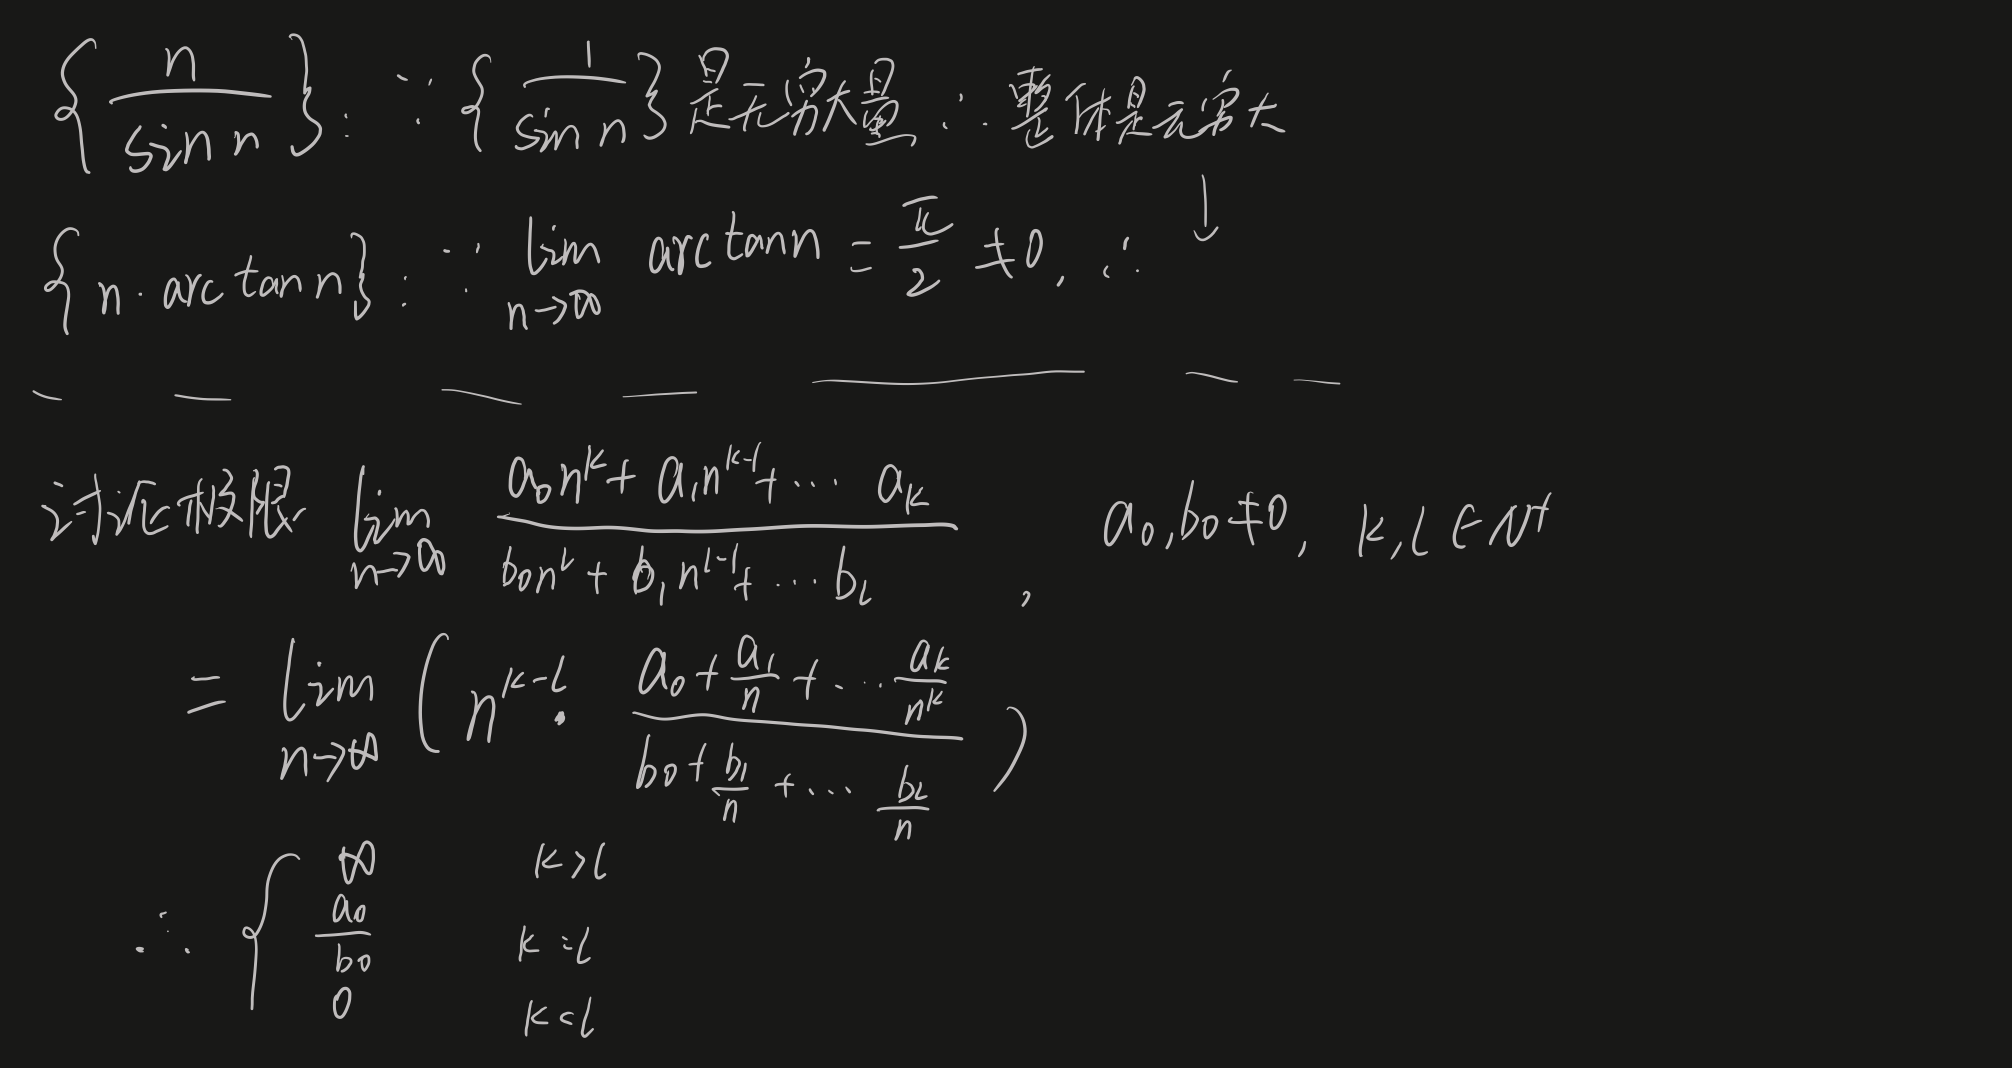 {n/(sin n)}: ∵ {1/(sin n)}是无穷大量 ∴ 整体是无穷大
↓
{n · arctan n}: ∵ lim_{n→∞} arctan n = π/2 ≠ 0, ∴
讨论极限 lim_{n→∞} (a₀n^k + a₁n^{k-1} + ⋯ a_k)/(b₀n^l + b₁n^{l-1} + ⋯ b_l), a₀, b₀ ≠ 0, k, l ∈ N⁺
= lim_{n→∞} (n^{k-l} · (a₀ + a₁/n + ⋯ a_k/n^k)/(b₀ + b₁/n + ⋯ b_l/n))
∴ { ∞ k > l
a₀/b₀ k = l
0 k < l